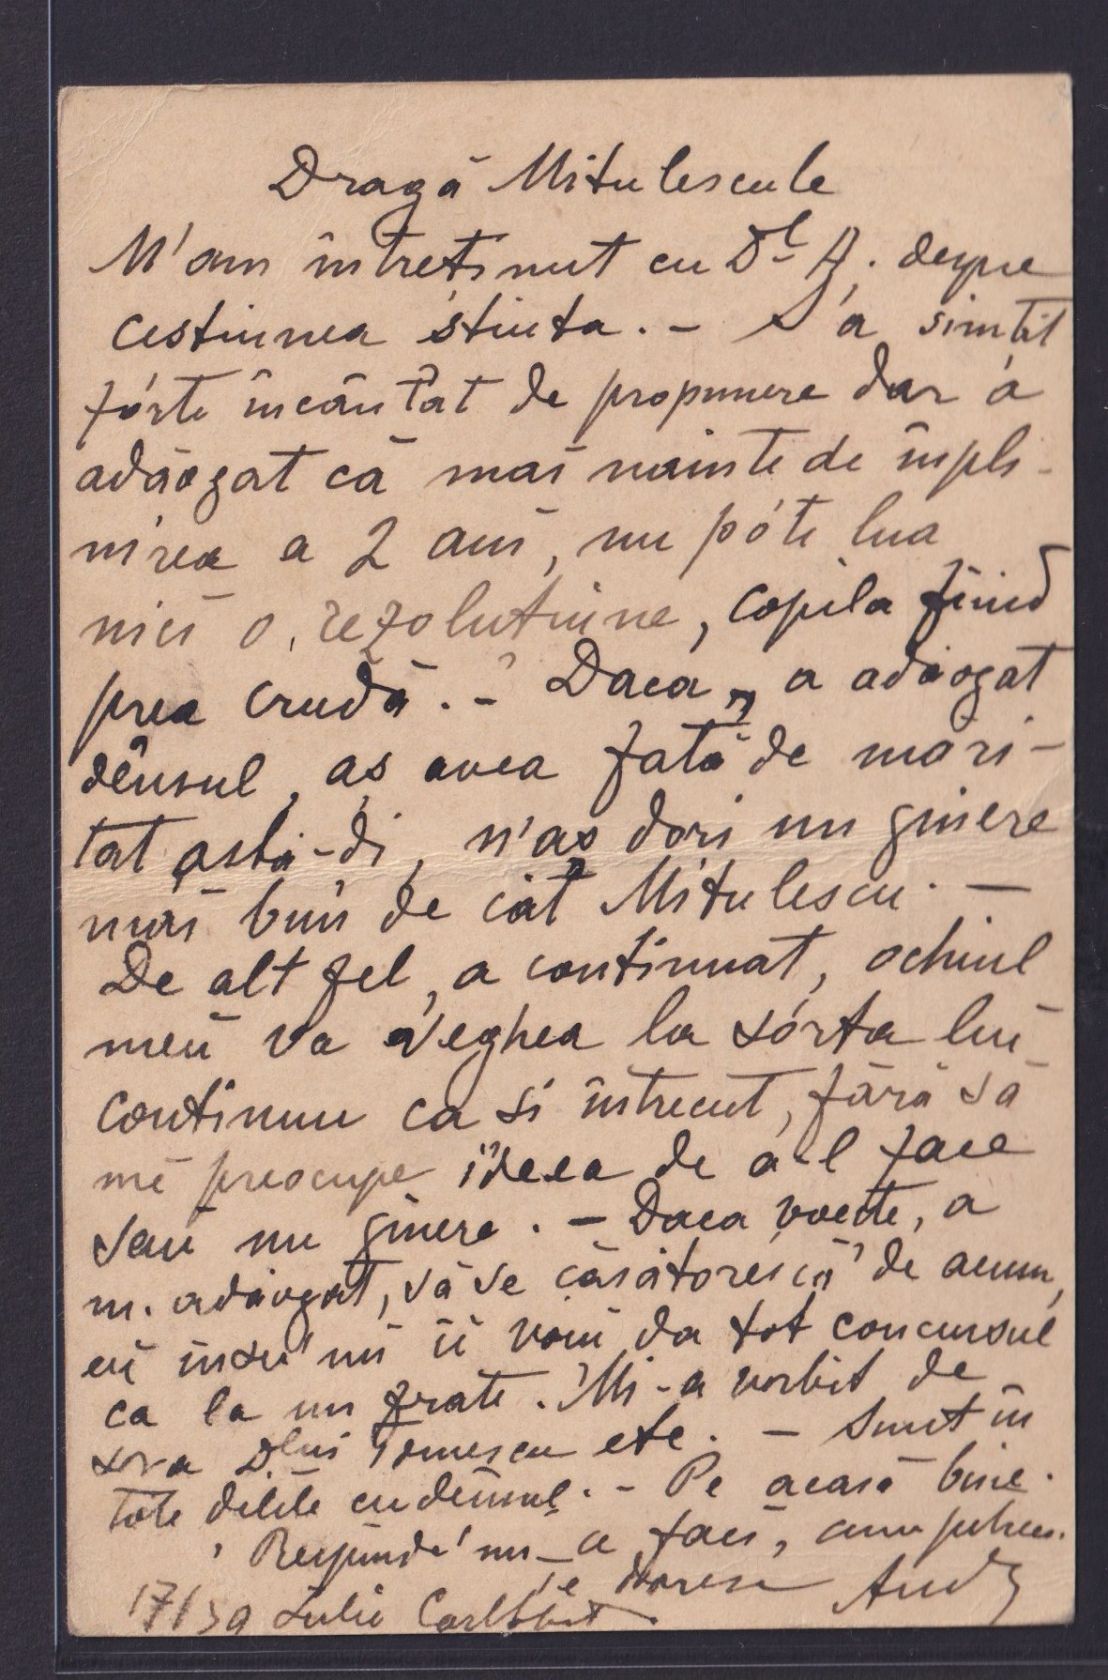 Dragă Mitulescule
M'am întreținut cu Dl A. despre
cestiunea știuta. – S'a simțit
fórte încântat de propunere dar a
adăogat că maĭ nainte de împli-
nirea a 2 anĭ, nu póte lua
nicĭ o rezoluțiune, copila fiind
prea crudă. – Daca, a adăogat
dênsul, aș avea fată de mări-
tat astă-di, n'aș dori un ginere
maĭ bun de cât Mitulescu. –
De alt fel, a continuat, ochiul
meŭ va veghea la sórta luĭ
continuu ca si în trecut, fără să
mĕ preocupe ideea de a-l face
saŭ nu ginere. – Daca voeste, a
m. adăogat, să se căsătorescă de acum,
eŭ însu'mĭ iĭ voiŭ da tot concursul
ca la un frate. Mi-a vorbit de
sora Dluĭ Ionescu etc. – Sunt în
tóte dilele cu dênsul. – Pe acasă bine.
Respunde'mĭ ce facĭ, cum petreci.
Te
17/ Iulie